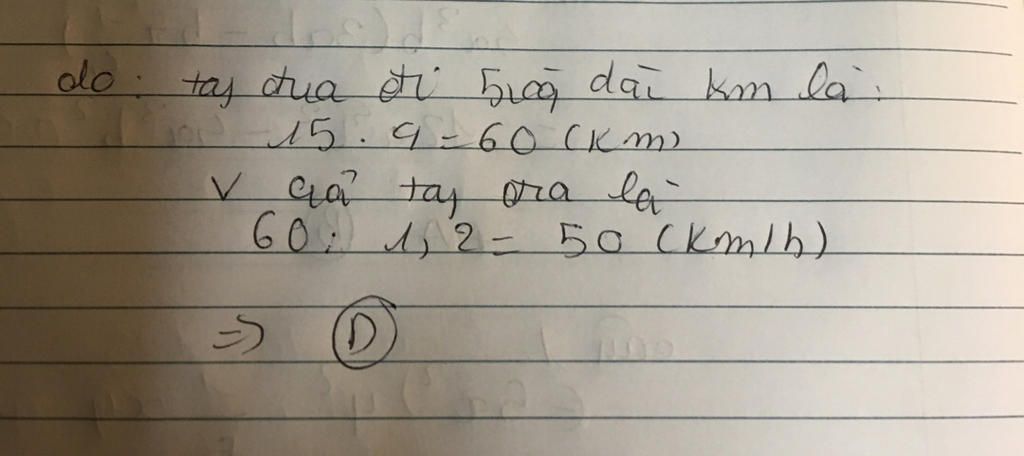 do: tay đua đi quãng dài km là:
15.4=60 (km)
V của tay đua là
60: 1,2= 50 (km/h)
=> D